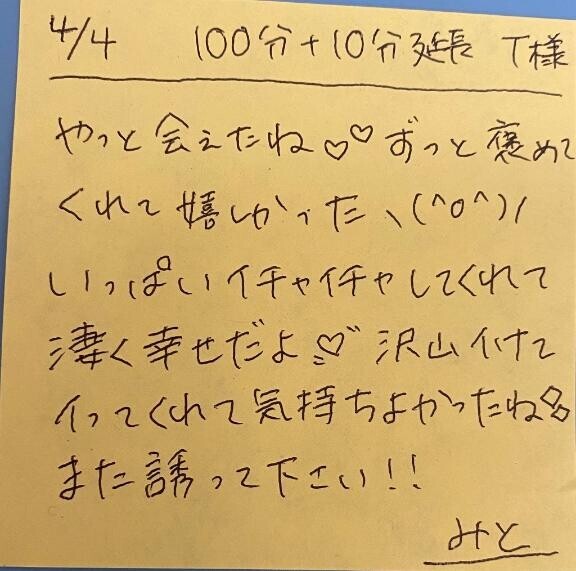 4/4 100分+10分延長 T様
やっと会えたね♡♡ずっと褒めて
くれて嬉しかったヽ(^o^)ﾉ
いっぱいイチャイチャしてくれて
凄く幸せだよ♡ 沢山
イってくれて気持ちよかったね
また誘って下さい!!
みと